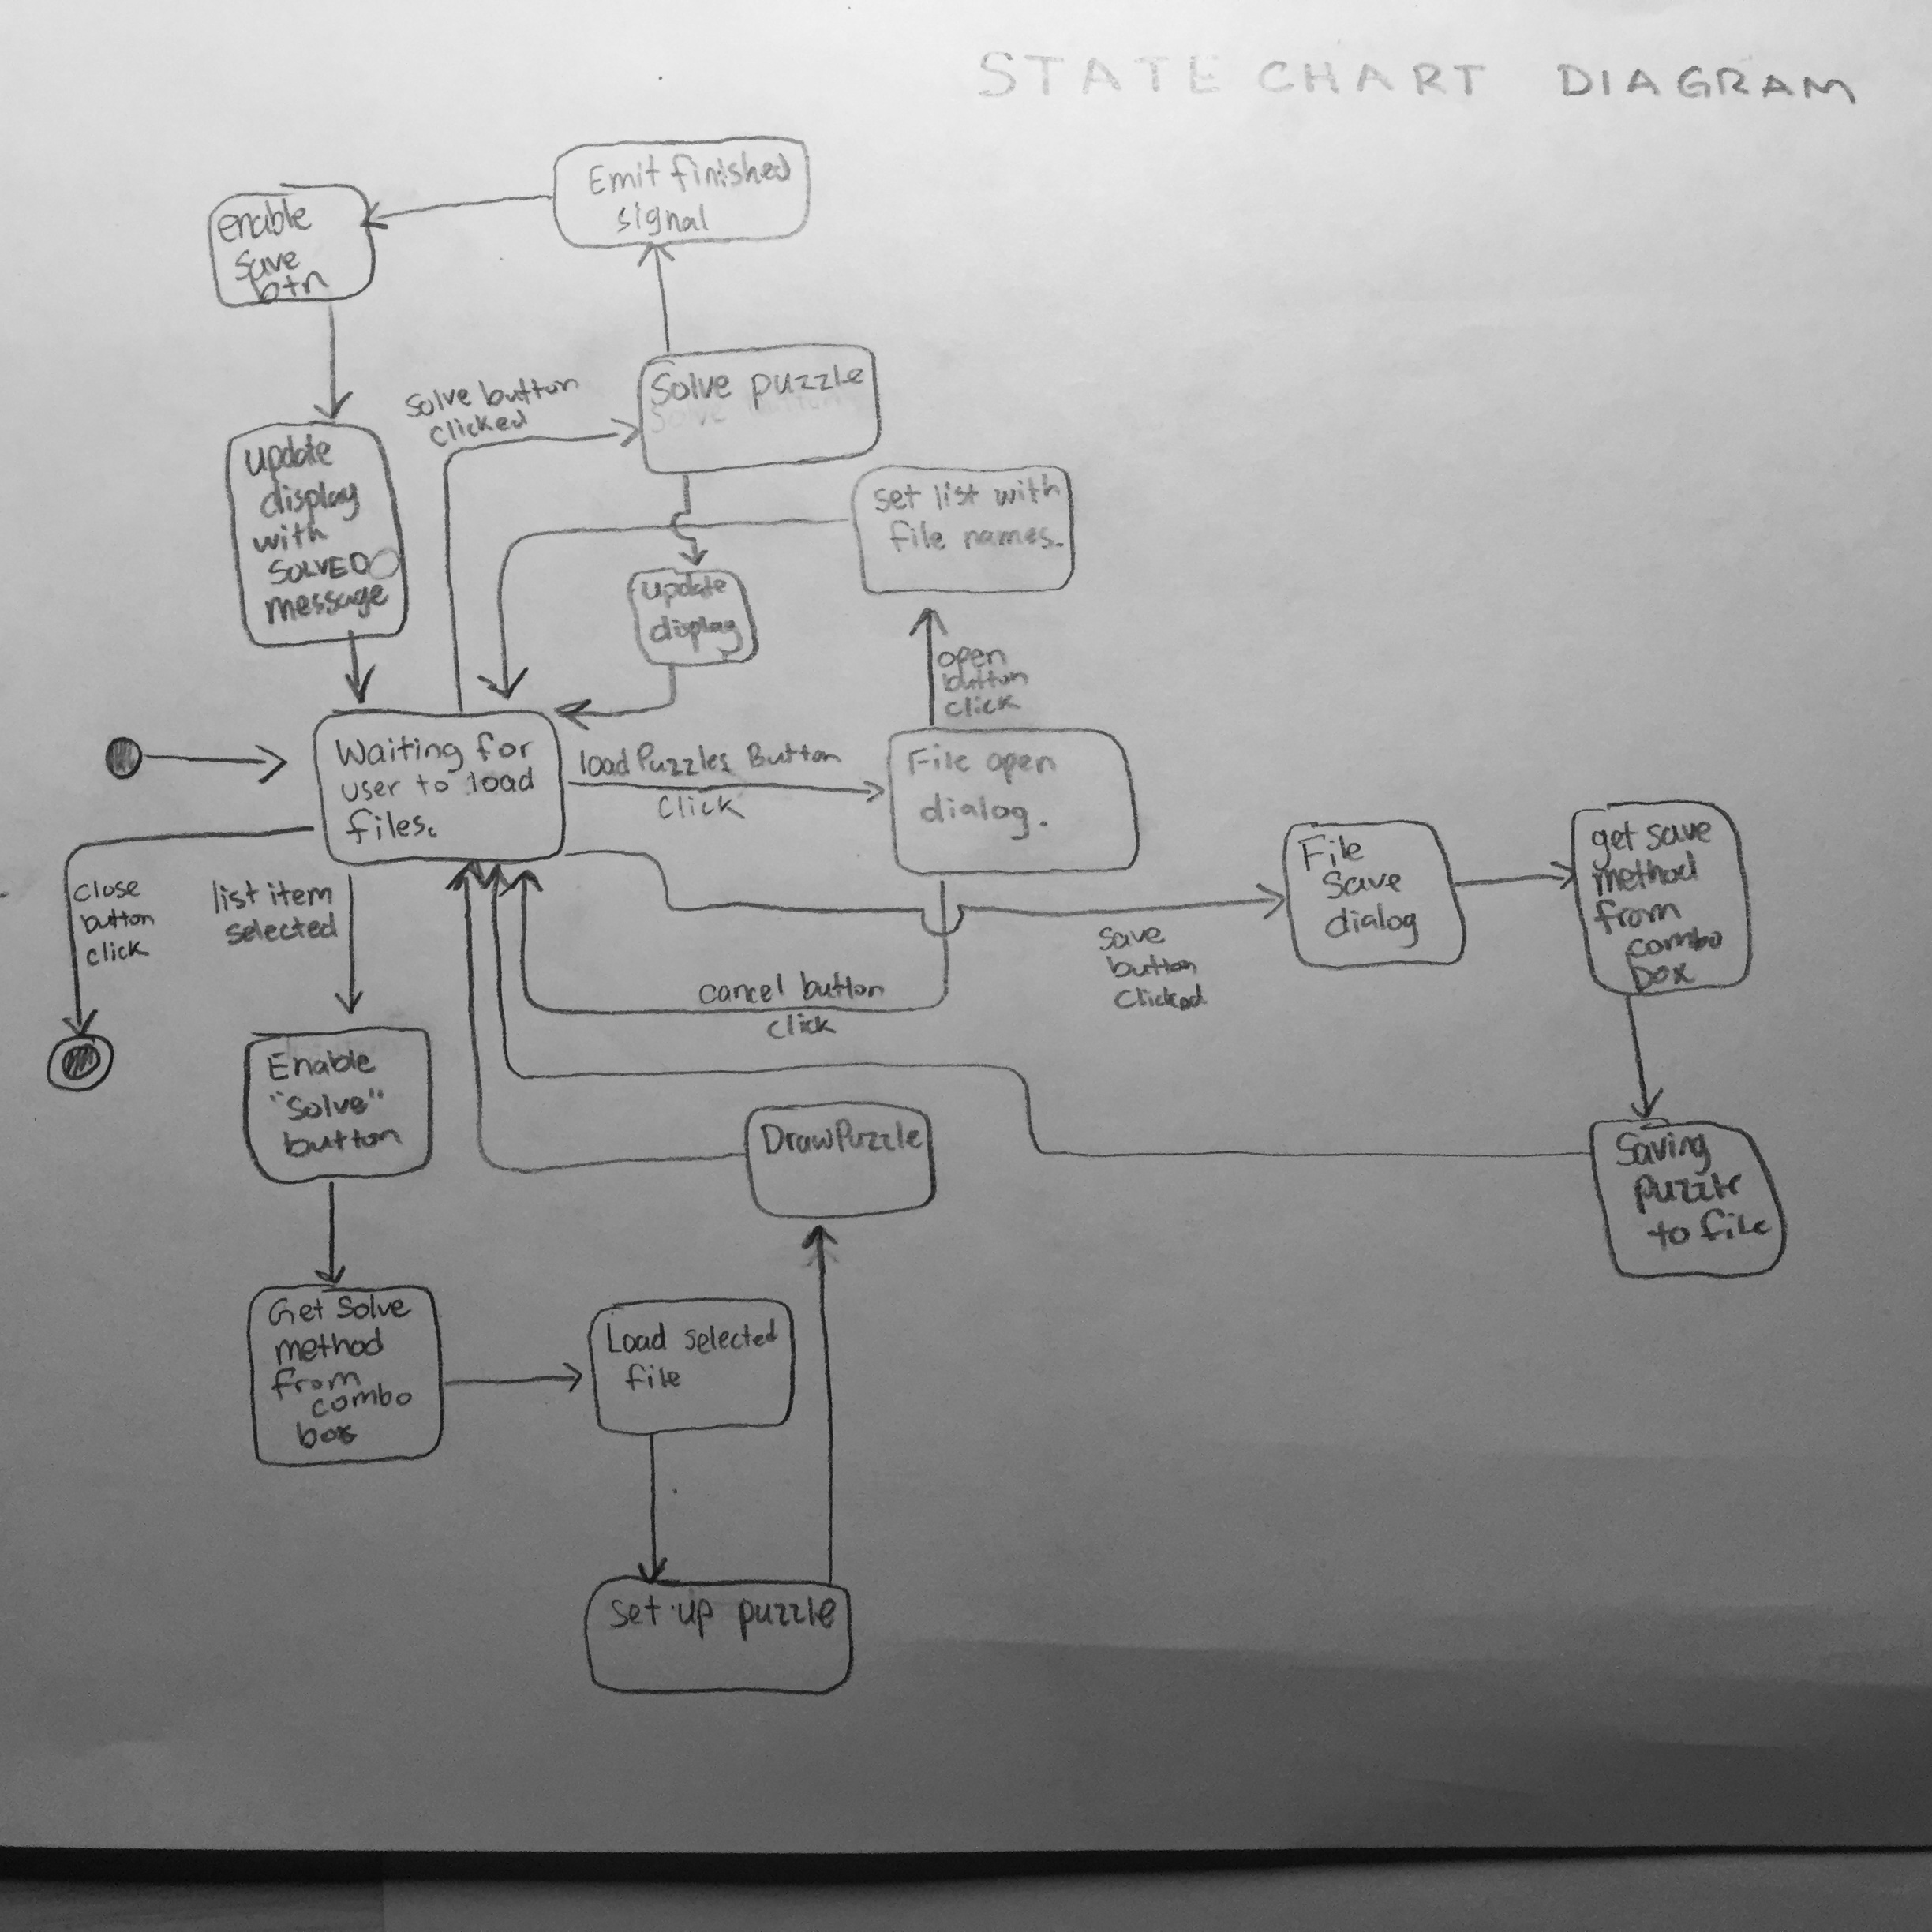 STATE CHART DIAGRAM
Emit finished
signal
enable
save
btn
Solve button
clicked
Solve puzzle
update
display
with
SOLVED
message
set list with
file names.
update
display
open
button
click
Waiting for
user to load
files.
load Puzzles Button
click
File open
dialog.
close
button
click
list item
selected
File
Save
dialog
get save
method
from
combo
box
save
button
clicked
cancel button
click
Enable
"Solve"
button
DrawPuzzle
Saving
puzzle
to file
Get Solve
method
from
combo
box
Load selected
file
set up puzzle